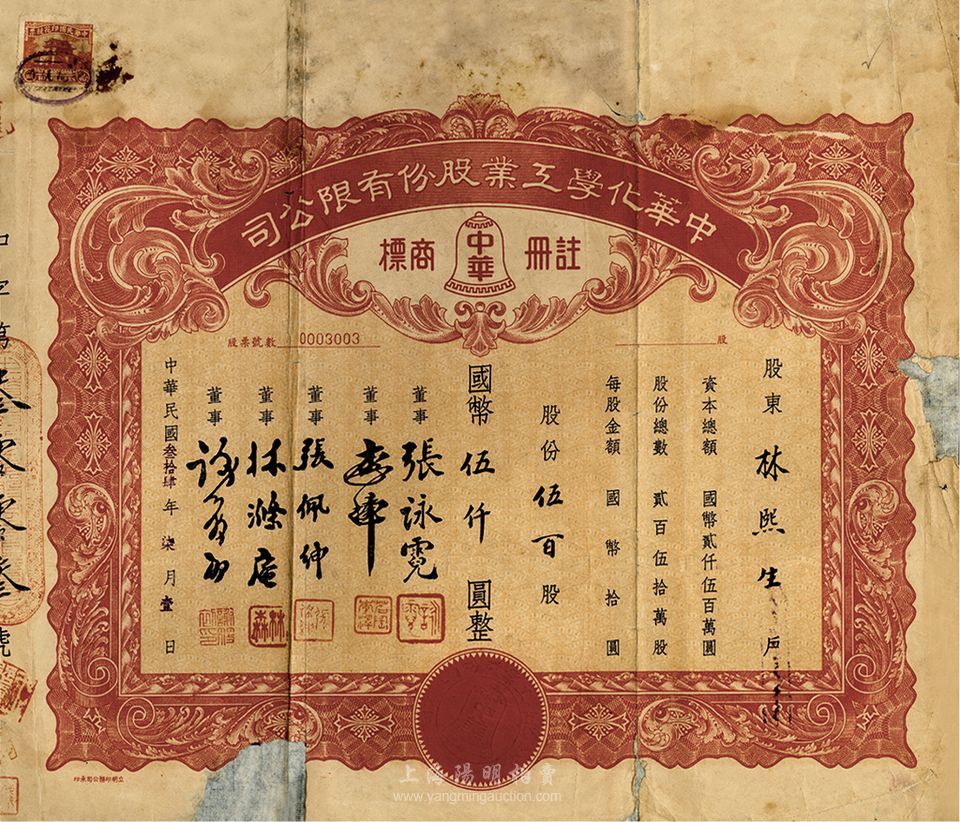 中華化學工業股份有限公司
註冊
中華
商標
股
股票號數 0003003
股東 林熙生
資本總額 國幣貳仟伍百萬圓
股份總數 貳百伍拾萬股
每股金額 國幣拾圓
股份伍百股
國幣伍仟圓整
董事 張詠霓
董事
董事 張佩紳
董事 林滌庵
董事
中華民國叁拾肆年柒月壹日
叁零零叁號
立明印務公司承印
上海陽明拍賣
www.yangmingauction.com